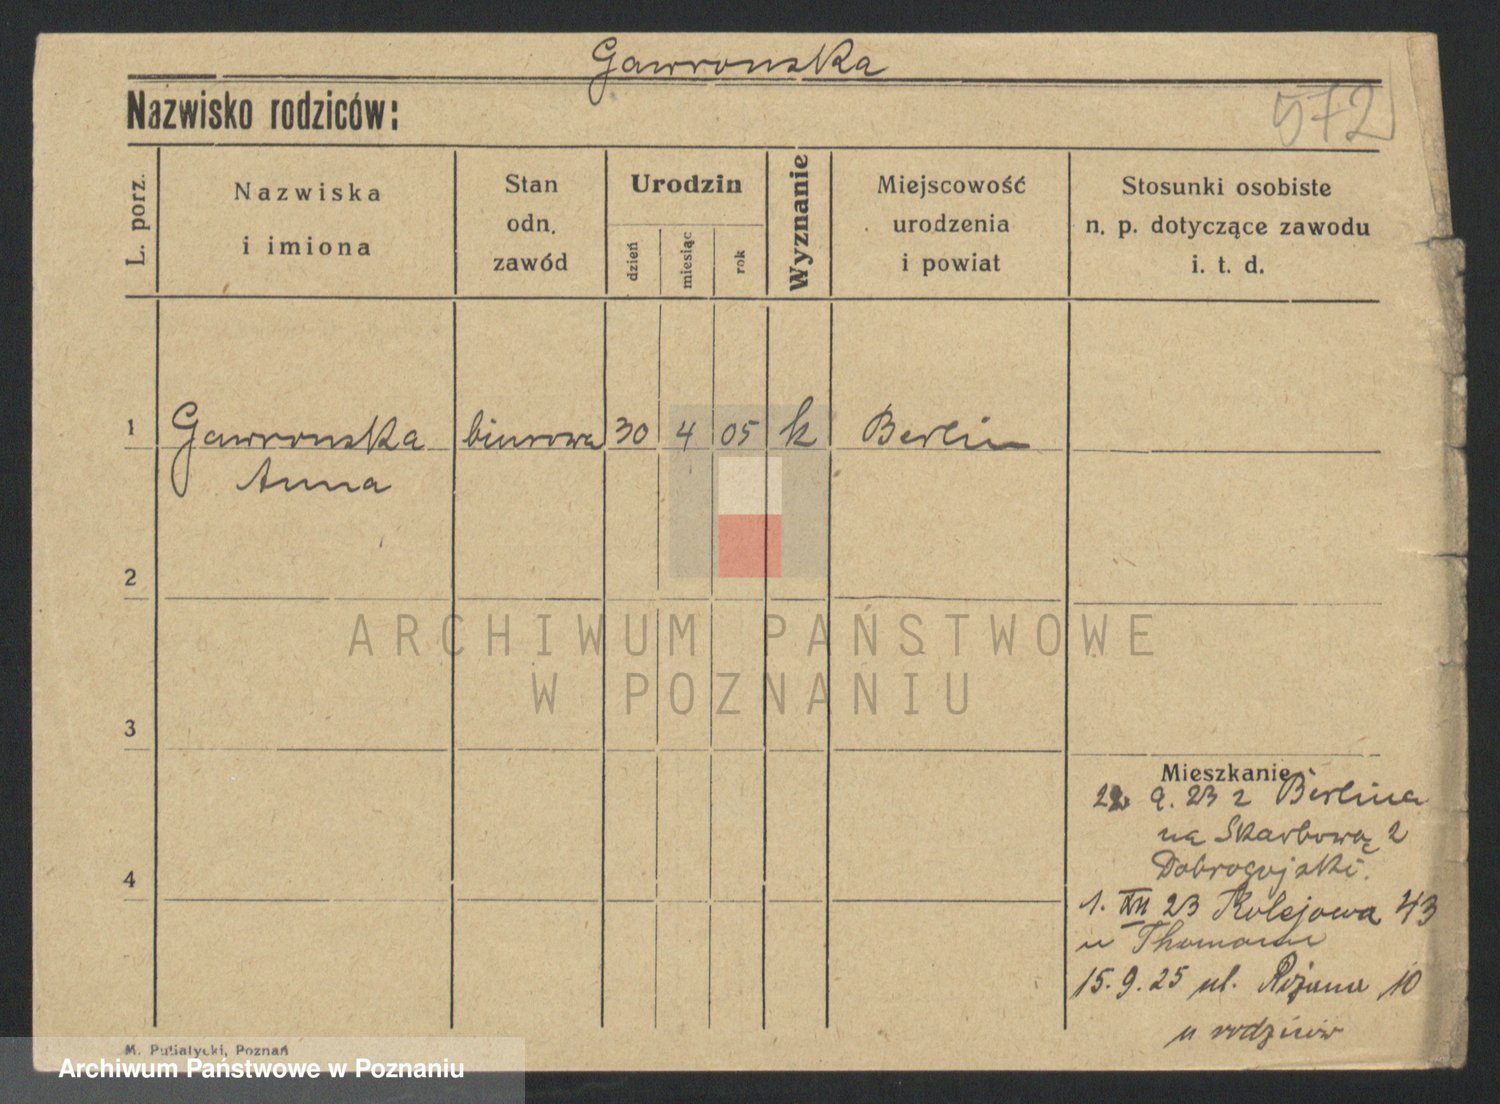 Gawronska
Nazwisko rodziców:
572
L. porz.
Nazwiska
i imiona
Stan
odn.
zawód
Urodzin
dzień
miesiąc
rok
Wyznanie
Miejscowość
urodzenia
i powiat
Stosunki osobiste
n. p. dotyczące zawodu
i. t. d.
1
Gawronska
Anna
biurowa
30
4
05
k
Berlin
2
ARCHIWUM PAŃSTWOWE
W POZNANIU
3
Mieszkanie
22. 9. 23 z Berlina
na Skarbową 2
4
1. XII 23 Kolejowa 43
u Thomann
15. 9. 25 ul. Różana 10
u rodziców
M. Putiatycki, Poznań
Archiwum Państwowe w Poznaniu